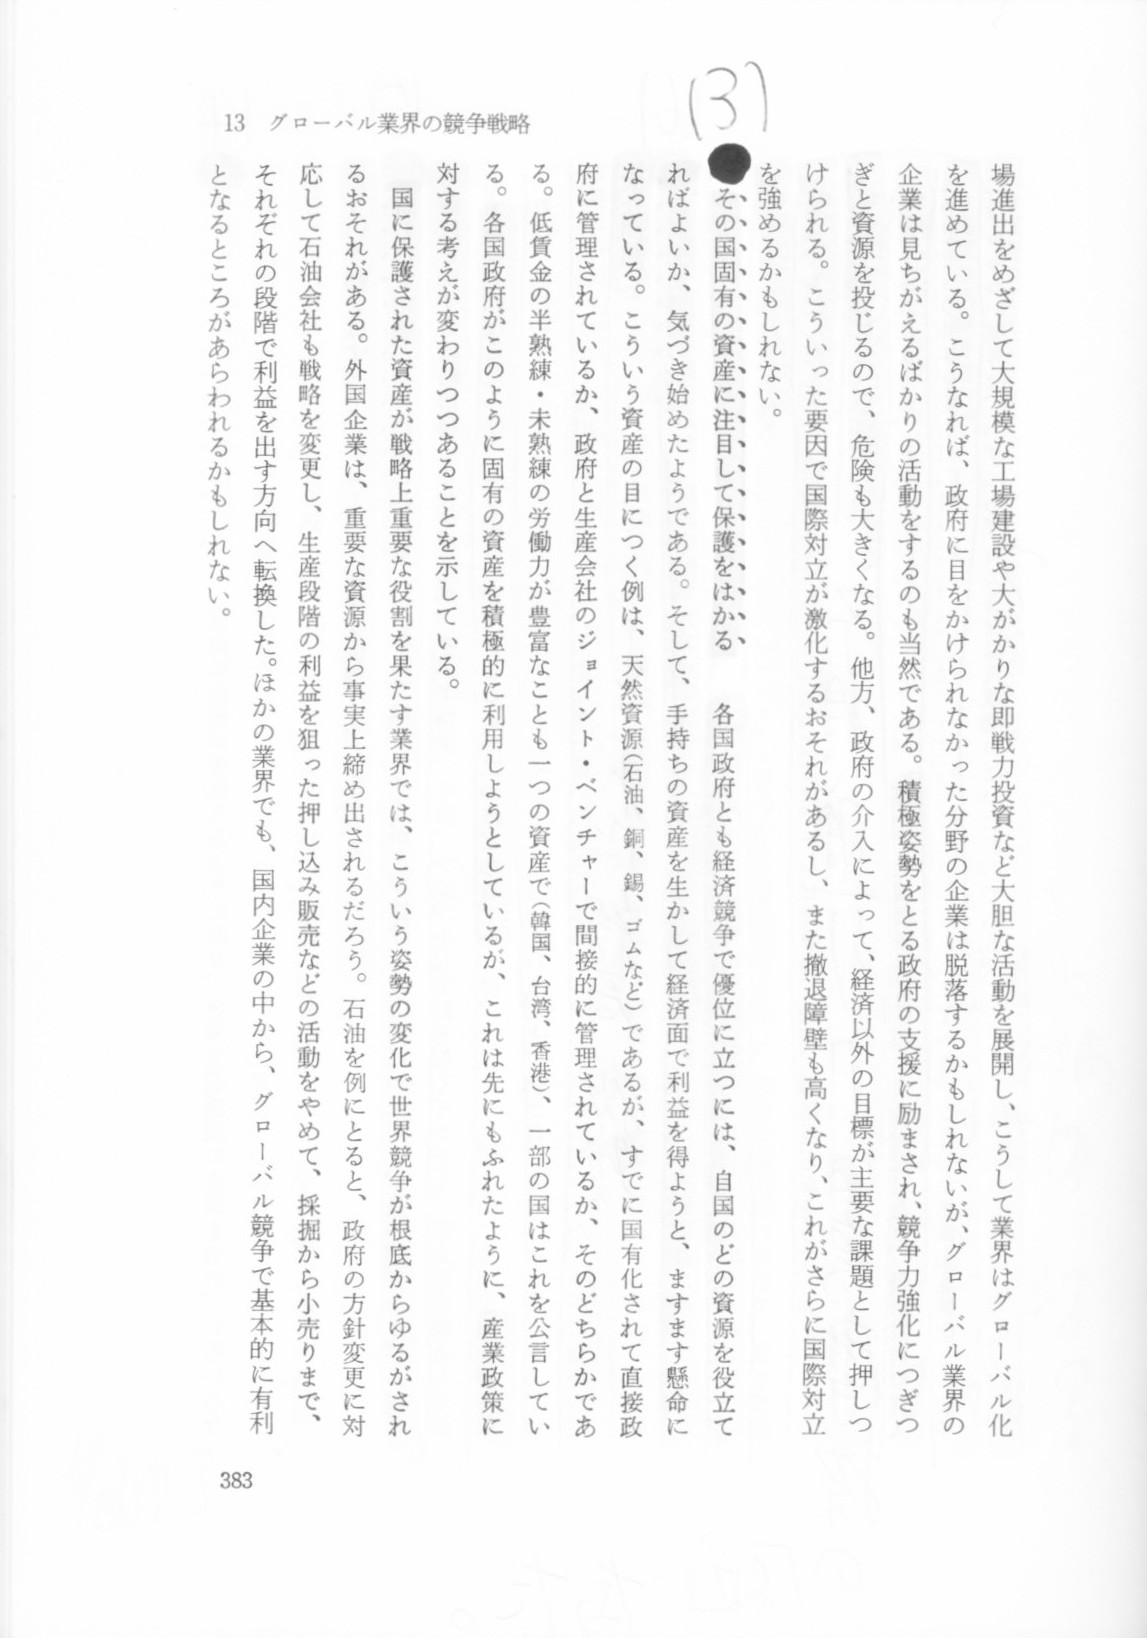 (3)
13 グローバル業界の競争戦略
場進出をめざして大規模な工場建設や大がかりな即戦力投資など大胆な活動を展開し、こうして業界はグローバル化
を進めている。こうなれば、政府に目をかけられなかった分野の企業は脱落するかもしれないが、グローバル業界の
企業は見ちがえるばかりの活動をするのも当然である。積極姿勢をとる政府の支援に励まされ、競争力強化につぎつ
ぎと資源を投じるので、危険も大きくなる。他方、政府の介入によって、経済以外の目標が主要な課題として押しつ
けられる。こういった要因で国際対立が激化するおそれがあるし、また撤退障壁も高くなり、これがさらに国際対立
を強めるかもしれない。
●その国固有の資産に注目して保護をはかる 各国政府とも経済競争で優位に立つには、自国のどの資源を役立て
ればよいか、気づき始めたようである。そして、手持ちの資産を生かして経済面で利益を得ようと、ますます懸命に
なっている。こういう資産の目につく例は、天然資源(石油、銅、錫、ゴムなど)であるが、すでに国有化されて直接政
府に管理されているか、政府と生産会社のジョイント・ベンチャーで間接的に管理されているか、そのどちらかであ
る。低賃金の半熟練・未熟練の労働力が豊富なことも一つの資産で(韓国、台湾、香港)、一部の国はこれを公言してい
る。各国政府がこのように固有の資産を積極的に利用しようとしているが、これは先にもふれたように、産業政策に
対する考えが変わりつつあることを示している。
国に保護された資産が戦略上重要な役割を果たす業界では、こういう姿勢の変化で世界競争が根底からゆるがされ
るおそれがある。外国企業は、重要な資源から事実上締め出されるだろう。石油を例にとると、政府の方針変更に対
応して石油会社も戦略を変更し、生産段階の利益を狙った押し込み販売などの活動をやめて、採掘から小売りまで、
それぞれの段階で利益を出す方向へ転換した。ほかの業界でも、国内企業の中から、グローバル競争で基本的に有利
となるところがあらわれるかもしれない。
383